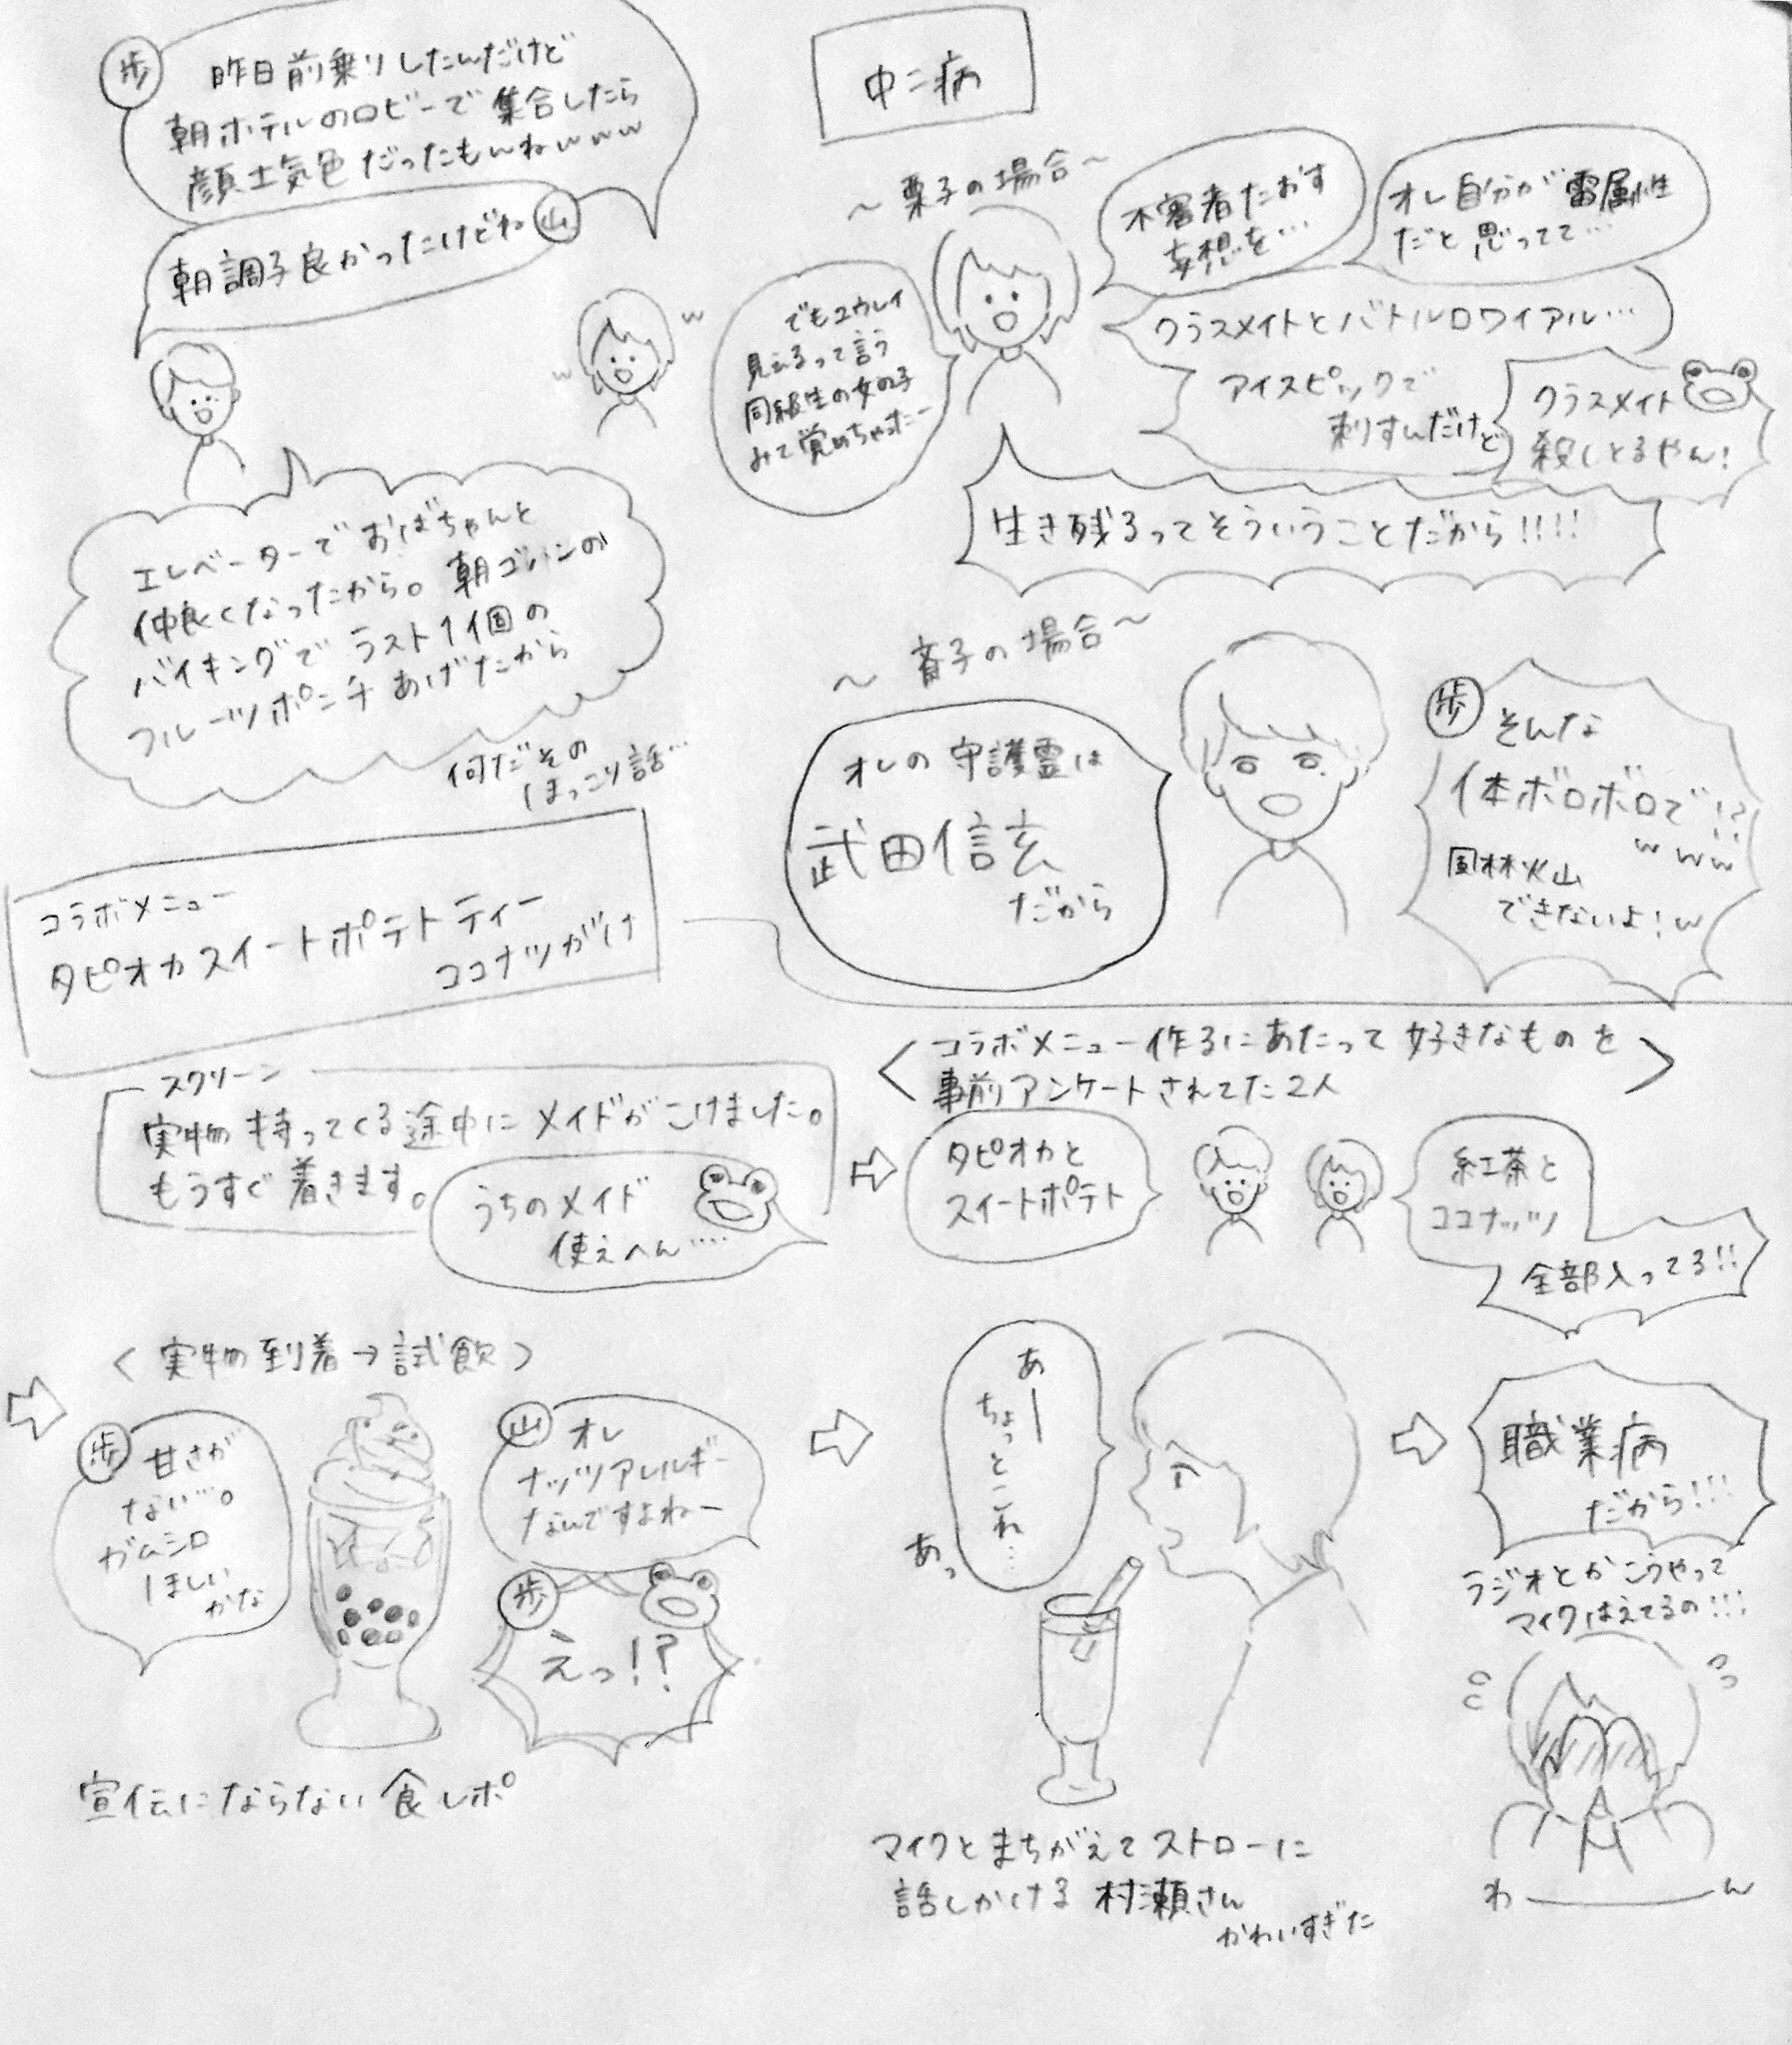 歩
昨日前乗りしたんだけど
朝ホテルのロビーで集合したら
顔土気色だったもんねwww
朝調子良かったけどね
山
w
w
エレベーターでおばちゃんと
仲良くなったから。朝ゴハンの
バイキングでラスト1個の
フルーツポンチあげたから
何だその
ほっこり話…
中二病
〜栗子の場合〜
不審者たおす
妄想を…
オレ自分が雷属性
だと思ってて…
クラスメイトとバトルロワイアル…
アイスピックで
刺すんだけど
クラスメイト
殺しとるやん!
でもユウレイ
見えるって言う
同級生の女の子
みて覚めちゃったー
生き残るってそういうことだから!!!!
〜育子の場合〜
オレの守護霊は
武田信玄
だから
歩
そんな
体ボロボロで!?
www
風林火山
できないよ!w
コラボメニュー
タピオカスイートポテトティー
ココナツがけ
スクリーン
実物持ってくる途中にメイドがこけました。
もうすぐ着きます。
うちのメイド
使えへん….
<コラボメニュー作るにあたって好きなものを
事前アンケートされてた2人>
タピオカと
スイートポテト
紅茶と
ココナッツ
全部入ってる!!
<実物到着→試飲>
歩
甘さが
ない…。
ガムシロ
ほしい
かな
山
オレ
ナッツアレルギー
なんですよねー
歩
えっ!?
宣伝にならない食レポ
あー
ちょっとこれ…
あっ
マイクとまちがえてストローに
話しかける村瀬さん
かわいすぎた
職業病
だから!!!
ラジオとかこうやって
マイクはえてるの!!!
わーーん